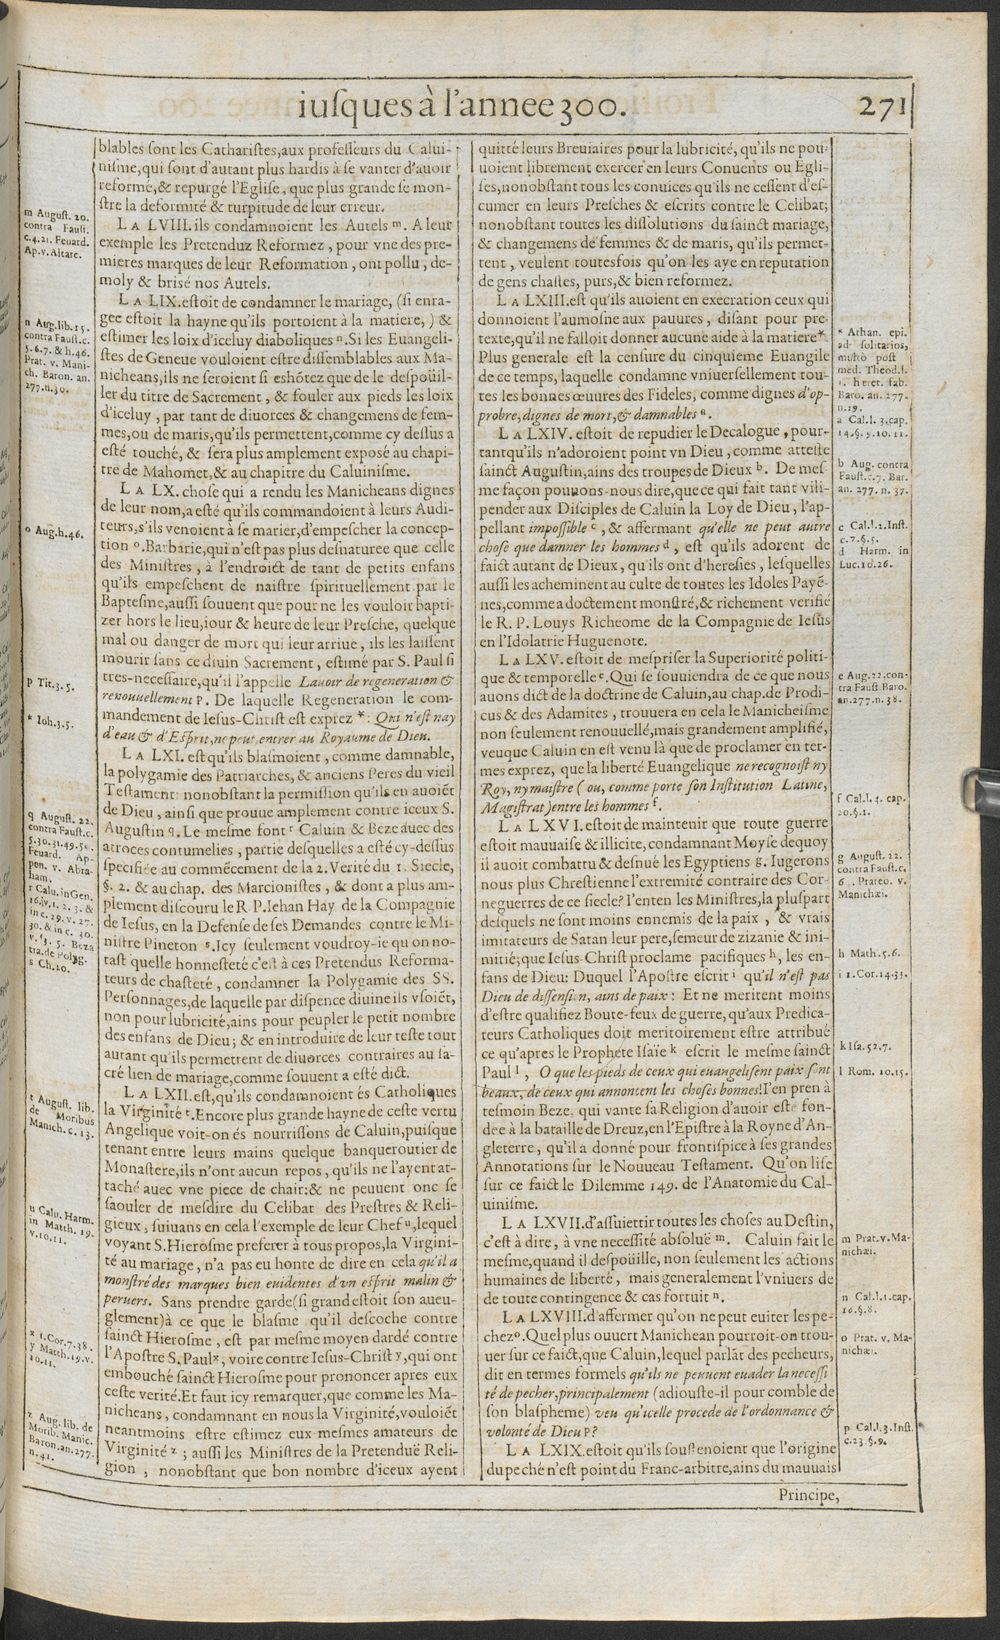 iuſques à l'annee 300.
271
blables ſont les Cathariſtes, aux profeſſeurs du Calui-
niſme, qui ſont d'autant plus hardis à ſe vanter d'auoir
reformé, & repurgé l'Egliſe, que plus grande ſe mon-
ſtre la deformité & turpitude de leur erreur.
LA LVIII. ils condamnoient les Autels m. A leur
exemple les Pretenduz Reformez, pour vne des pre-
mieres marques de leur Reformation, ont pollu, de-
moly & briſé nos Autels.
LA LIX. eſtoit de condamner le mariage, (ſi enra-
gee eſtoit la hayne qu'ils portoient à la matiere,) &
eſtimer les loix d'iceluy diaboliques n. Si les Euangeli-
ſtes de Geneue vouloient eſtre diſſemblables aux Ma-
nicheans, ils ne ſeroient ſi eshõtez que de le deſpoüil-
ler du titre de Sacrement, & fouler aux pieds les loix
d'iceluy, par tant de diuorces & changemens de fem-
mes, ou de maris, qu'ils permettent, comme cy deſſus a
eſté touché, & ſera plus amplement expoſé au chapi-
tre de Mahomet, & au chapitre du Caluiniſme.
LA LX. choſe qui a rendu les Manicheans dignes
de leur nom, a eſté qu'ils commandoient à leurs Audi-
teurs, s'ils venoient à ſe marier, d'empeſcher la concep-
tion o. Barbarie, qui n'eſt pas plus deſnaturee que celle
des Miniſtres, à l'endroict de tant de petits enfans
qu'ils empeſchent de naiſtre ſpirituellement par le
Bapteſme, auſſi ſouuent que pour ne les vouloir bapti-
zer hors le lieu, iour & heure de leur Preſche, quelque
mal ou danger de mort qui leur arriue, ils les laiſſent
mourir ſans ce diuin Sacrement, eſtimé par S. Paul ſi
tres-neceſſaire, qu'il l'appelle Lauoir de regeneration &
renouuellement p. De laquelle Regeneration le com-
mandement de Ieſus-Chriſt eſt exprez *: Qui n'eſt nay
d'eau & d'Eſprit, ne peut entrer au Royaume de Dieu.
LA LXI. eſt qu'ils blaſmoient, comme damnable,
la polygamie des Patriarches, & anciens Peres du vieil
Teſtament: nonobſtant la permiſſion qu'ils en auoiẽt
de Dieu, ainſi que prouue amplement contre iceux S.
Auguſtin q. Le meſme font r Caluin & Beze auec des
atroces contumelies, partie deſquelles a eſté cy-deſſus
ſpecifiée au commẽcement de la 2. Verité du 1. Siecle,
§. 2. & au chap. des Marcioniſtes, & dont a plus am-
plement diſcouru le R. P. Iehan Hay de la Compagnie
de Ieſus, en la Defenſe de ſes Demandes contre le Mi-
niſtre Pineton s. Icy ſeulement voudroy-ie qu on no-
taſt quelle honneſteté c'eſt à ces Pretendus Reforma-
teurs de chaſteté, condamner la Polygamie des SS.
Perſonnages, de laquelle par diſpence diuine ils vſoiẽt,
non pour lubricité, ains pour peupler le petit nombre
des enfans de Dieu; & en introduire de leur teſte tout
autant qu'ils permettent de diuorces contraires au ſa-
cré lien de mariage, comme ſouuent a eſté dict.
LA LXII. eſt, qu'ils condamnoient és Catholiques
la Virginité t. Encore plus grande hayne de ceſte vertu
Angelique voit-on és nourriſſons de Caluin, puiſque
tenant entre leurs mains quelque banqueroutier de
Monaſtere, ils n'ont aucun repos, qu'ils ne l'ayent at-
taché auec vne piece de chair: & ne peuuent onc ſe
ſaouler de meſdire du Celibat des Preſtres & Reli-
gieux, ſuiuans en cela l'exemple de leur Chef u, lequel
voyant S. Hieroſme preferer à tous propos, la Virgini-
té au mariage, n'a pas eu honte de dire en cela qu'il a
monſtré des marques bien euidentes d'vn eſprit malin &
peruers. Sans prendre garde (ſi grand eſtoit ſon aueu-
glement) à ce que le blaſme qu'il deſcoche contre
ſainct Hieroſme, eſt par meſme moyen dardé contre
l'Apoſtre S. Paul x, voire contre Ieſus-Chriſt y, qui ont
embouché ſainct Hieroſme pour prononcer apres eux
ceſte verité. Et faut icy remarquer, que comme les Ma-
nicheans, condamnant en nous la Virginité, vouloiẽt
neantmoins eſtre eſtimez eux meſmes amateurs de
Virginité z; auſſi les Miniſtres de la Pretenduë Reli-
gion, nonobſtant que bon nombre d'iceux ayent
m Auguſt. 20.
contra Fauſt.
c. 4. 21. Feuard.
Ap. v. Altare.
n Aug. lib. 15.
contra Fauſt. c.
5. 6. 7. & h. 46.
Prat. v. Mani-
ch. Baron. an.
277. n. 30.
o Aug. h. 46.
p Tit. 3. 5.
* Ioh. 3. 5.
q Auguſt. 22.
contra Fauſt. c.
Feuard. Ap-
pon. v. Abra-
ham.
r Calu. in Gen.
16. v. 1. 2. 3. &
in c. 29. v. 27.
30. & in c. 30.
v. 3. 5. Beza
tra. de Polyg.
s Ch. 10.
t Auguſt. lib.
de Moribus
Manich. c. 13.
u Calu. Harm.
in Matth. 19.
v. 10. 11.
x 1. Cor. 7. 38.
y Matth. 19. v.
10. 11.
z Aug. lib. de
Morib. Manic.
Baron. an. 277.
n. 41.
quitté leurs Breuiaires pour la lubricité, qu'ils ne pou-
uoient librement exercer en leurs Conuents ou Egli-
ſes, nonobſtant tous les conuices qu'ils ne ceſſent d'eſ-
cumer en leurs Preſches & eſcrits contre le Celibat;
nonobſtant toutes les diſſolutions du ſainct mariage,
& changemens de femmes & de maris, qu'ils permet-
tent, veulent toutesfois qu'on les aye en reputation
de gens chaſtes, purs, & bien reformez.
LA LXIII. eſt qu'ils auoient en execration ceux qui
donnoient l'aumoſne aux pauures, diſant pour pre-
texte, qu'il ne falloit donner aucune aide à la matiere*.
Plus generale eſt la cenſure du cinquieme Euangile
de ce temps, laquelle condamne vniuerſellement tou-
tes les bonnes œuures des Fideles, comme dignes d'op-
probre, dignes de mort, & damnables a.
LA LXIV. eſtoit de repudier le Decalogue, pour-
tant qu'ils n'adoroient point vn Dieu, comme atteſte
ſainct Auguſtin, ains des troupes de Dieux b. De meſ
me façon pouuons-nous dire, que ce qui fait tant vili-
pender aux Diſciples de Caluin la Loy de Dieu, l'ap-
pellant impoſſible c, & affermant qu'elle ne peut autre
choſe que damner les hommes d, eſt qu'ils adorent de
faict autant de Dieux, qu'ils ont d'hereſies, leſquelles
auſſi les acheminent au culte de toutes les Idoles Payé-
nes, comme a doctement monſtré, & richement verifié
le R. P. Louys Richeome de la Compagnie de Ieſus
en l'Idolatrie Huguenote.
LA LXV. eſtoit de meſpriſer la Superiorité politi-
que & temporelle e. Qui ſe ſouuiendra de ce que nous
auons dict de la doctrine de Caluin, au chap. de Prodi-
cus & des Adamites, trouuera en cela le Manicheiſme
non ſeulement renouuellé, mais grandement amplifié,
veu que Caluin en eſt venu là que de proclamer en ter-
mes exprez, que la liberté Euangelique ne recognoiſt ny
Roy, ny maiſtre (ou, comme porte ſon Inſtitution Latine,
Magiſtrat) entre les hommes f.
LA LXVI. eſtoit de maintenir que toute guerre
eſtoit mauuaiſe & illicite, condamnant Moyſe dequoy
il auoit combattu & deſnué les Egyptiens g. Iugerons
nous plus Chreſtienne l'extremité contraire des Cor-
neguerres de ce ſiecle? I'enten les Miniſtres, la pluſpart
deſquels ne ſont moins ennemis de la paix, & vrais
imitateurs de Satan leur pere, ſemeur de zizanie & ini-
mitié; que Ieſus-Chriſt proclame pacifiques h, les en-
fans de Dieu: Duquel l'Apoſtre eſcrit i qu'il n'eſt pas
Dieu de diſſenſion, ains de paix: Et ne meritent moins
d'eſtre qualifiez Boute-feux de guerre, qu'aux Predica-
teurs Catholiques doit meritoirement eſtre attribué
ce qu'apres le Prophete Iſaïe k eſcrit le meſme ſainct
Paul l, O que les pieds de ceux qui euangeliſent paix ſont
beaux, de ceux qui annoncent les choſes bonnes! I'en pren à
teſmoin Beze, qui vante ſa Religion d'auoir eſté fon-
dee à la bataille de Dreuz, en l'Epiſtre à la Royne d'An-
gleterre, qu'il a donné pour frontiſpice à ſes grandes
Annotations ſur le Nouueau Teſtament. Qu'on liſe
ſur ce faict le Dilemme 149. de l'Anatomie du Cal-
uiniſme.
LA LXVII. d'aſſuiettir toutes les choſes au Deſtin,
c'eſt à dire, à vne neceſſité abſoluë m. Caluin fait le
meſme, quand il deſpoüille, non ſeulement les actions
humaines de liberté, mais generalement l'vniuers de
de toute contingence & cas fortuit n.
LA LXVIII. d'affermer qu'on ne peut euiter les pe-
chez o. Quel plus ouuert Manichean pourroit-on trou-
uer ſur ce faict, que Caluin, lequel parlãt des pecheurs,
dit en termes formels qu'ils ne peuuent euader la neceſſi
té de pecher, principalement (adiouſte-il pour comble de
ſon blaſpheme) veu qu'icelle procede de l'ordonnance &
volonté de Dieu p?
LA LXIX. eſtoit qu'ils ſouſtenoient que l'origine
du peché n'eſt point du Franc-arbitre, ains du mauuais
Principe,
* Athan. epi.
ad ſolitarios,
multò poſt
med. Theod. l.
1. heret. fab.
Baro. an. 277.
n. 29.
a Cal. l. 3. cap.
14. §. 9. 10. 11.
b Aug. contra
Fauſt. c. 7. Bar.
an. 277. n. 37.
c Cal. l. 2. Inſt.
c. 7. §. 5.
d Harm. in
Luc. 10. 26.
e Aug. 22. con-
tra Fauſt. Baro.
an. 277. n. 38.
f Cal. l. 4. cap.
20. §. 1.
g Auguſt. 22.
contra Fauſt. c.
Prateo. v.
Manichæi.
h Math. 5. 6.
i 1. Cor. 14. 33.
k Iſa. 52. 7.
l Rom. 10. 15.
m Prat. v. Ma-
nichæi.
n Cal. l. 1. cap.
16. §. 8.
o Prat. v. Ma-
nichæi.
p Cal. l. 3. Inſt.
c. 23. §. 9.